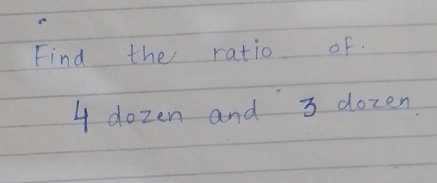 Find the ratio of.
4 dozen and 3 dozen.